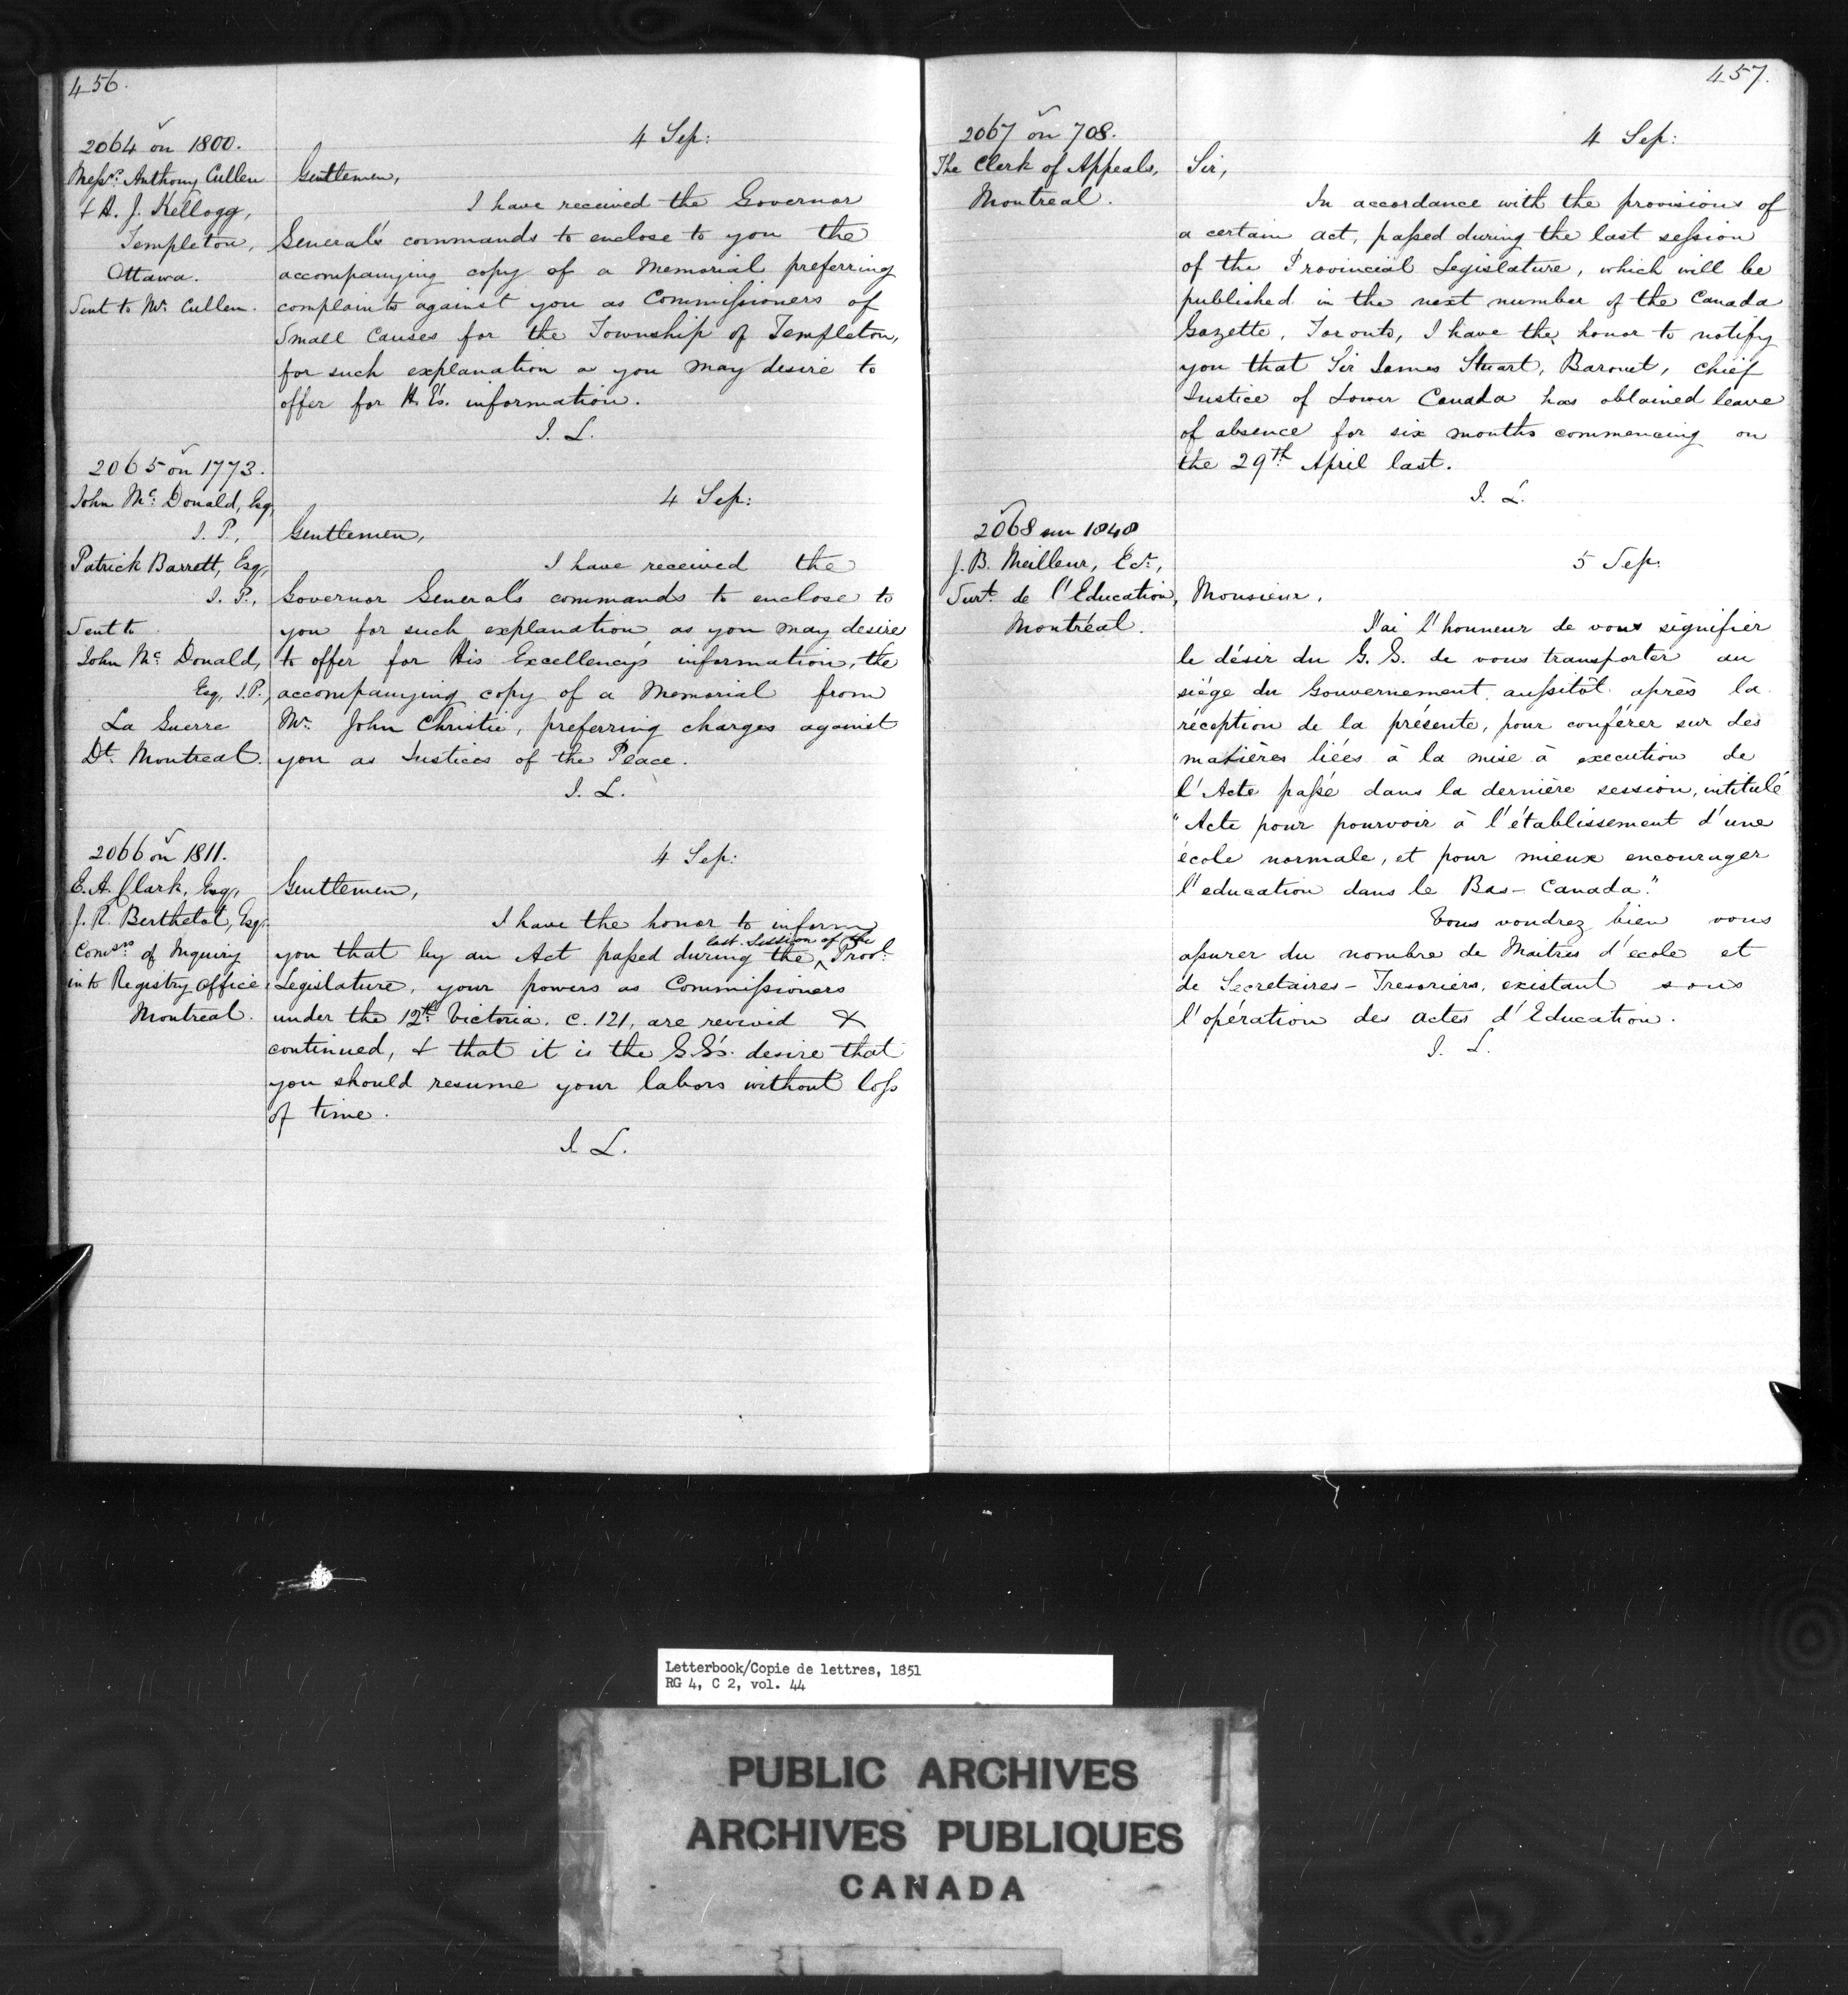 456.
2064 on 1800.
Messrs. Anthony Cullen
& A. J. Kellogg,
Templeton,
Ottawa.
Sent to Mr. Cullen.
4 Sep:
Gentlemen,
I have received the Governor
General's commands to enclose to you the
accompanying copy of a Memorial preferring
complaints against you as Commissioners of
Small Causes for the Township of Templeton,
for such explanation a you may desire to
offer for H. E's. information.
J. L.
2065 on 1773.
John Mc Donald, Esq,
J. P.,
Patrick Barrett, Esq,
J. P.,
Sent to
John Mc Donald,
Esq, J.P.,
La Guerre
Dt. Montreal.
4 Sep:
Gentlemen,
I have received the
Governor General's commands to enclose to
you for such explanation as you may desire
to offer for His Excellency's information, the
accompanying copy of a Memorial from
Mr. John Christie, preferring charges against
you as Justices of the Peace.
J. L.
2066 on 1811.
E. A. Clark, Esq,
J. A. Berthelot, Esq.
Comsrs of Inquiry
into Registry Office,
Montreal.
4 Sep:
Gentlemen,
I have the honor to inform
you that by an Act passed during the last Session of the Provl.
Legislature, your powers as Commissioners
under the 12th. Victoria. C. 121, are revived &
continued, & that it is the G.G's. desire that
you should resume your labors without loss
of time.
J. L.
457.
2067 on 708.
The Clerk of Appeals,
Montreal.
4 Sep:
Sir,
In accordance with the provisions of
a certain act, passed during the last session
of the Provincial Legislature, which will be
published in the next number of the Canada
Gazette, Toronto, I have the honor to notify
you that Sir James Stuart, Baronet, Chief
Justice of Lower Canada has obtained leave
of absence for six months commencing on
the 29th April last.
J. L.
2068 sur 1848
J. B. Meilleur, Ecr.,
Surt. de l'Education,
Montréal.
5 Sep.
Monsieur,
J'ai l'honneur de vous signifier
le désir du G. G. de vous transporter au
siége du Gouvernement aussitôt après la
réception de la présente, pour conférer sur des
matières liées à la mise à execution de
l'Acte passé dans la dernière session, intitulé
"Acte pour pourvoir à l'établissement d'une
école normale, et pour mieux encourager
l'education dans le Bas-Canada."
Vous voudrez bien vous
assurer du nombre de Maitres d'école et
de Secretaires-Tresoriers, existant sous
l'opération des actes d'Education.
J. L.
Letterbook/Copie de lettres, 1851
RG 4, C 2, vol. 44
PUBLIC ARCHIVES
ARCHIVES PUBLIQUES
CANADA